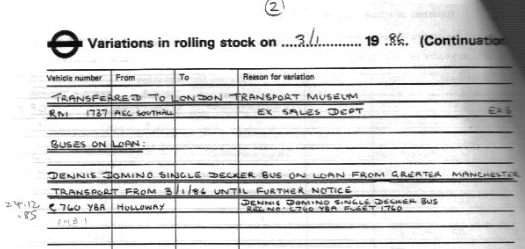 2
Variations in rolling stock on ....3/1............ 19 .86. (Continuation
Vehicle number From To Reason for variation
TRANSFERRED TO LONDON TRANSPORT MUSEUM
RM 1737 AEC SOUTHALL EX SALES DEPT EXS
BUSES ON LOAN:
DENNIS DOMINO SINGLE DECKER BUS ON LOAN FROM GREATER MANCHESTER
TRANSPORT FROM 3/1/86 UNTIL FURTHER NOTICE
24.12 .85
C760 YBA HOLLOWAY DENNIS DOMINO SINGLE DECKER BUS
REG NO: C760 YBA FLEET 1760